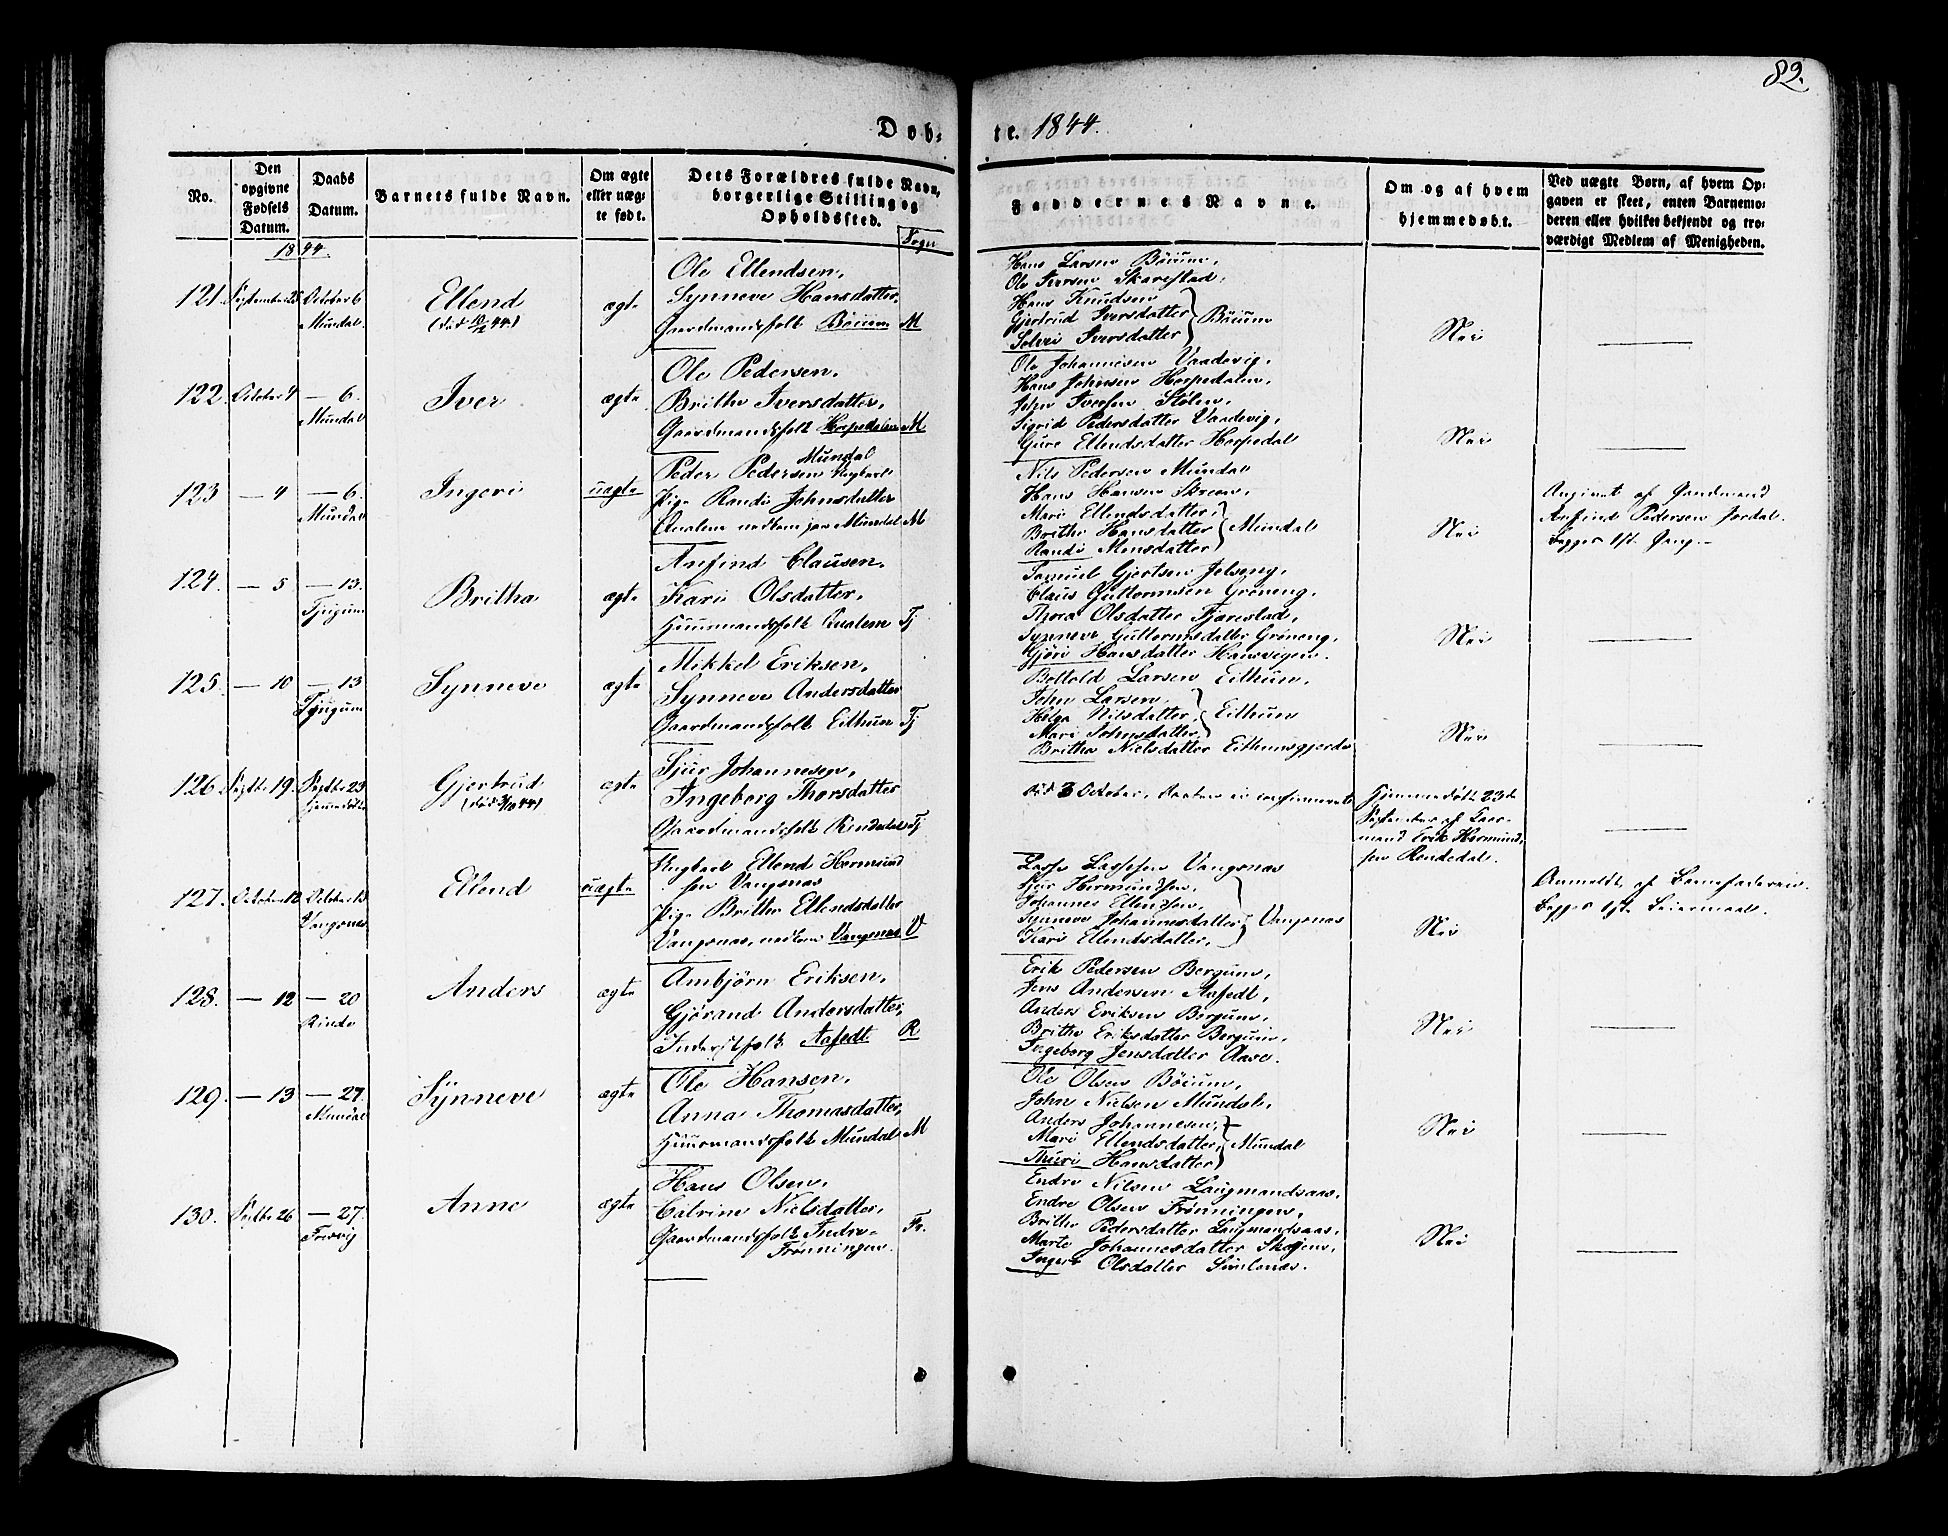 82.
Døb-
te. 1844.
No.
Den opgivne Fødsels Datum.
Daabs Datum.
Barnets fulde Navn.
Om ægte eller uægte født.
Dets Forældres fulde Navn, borgerlige Stilling og Opholdssted.
Sogn
Faddernes Navne.
Om og af hvem hjemmedøbt.
Ved uægte Børn, af hvem Opgaven er skeet, enten Barnemoderen eller hvilket bekjendt og troværdigt Medlem af Menigheden.
1844.
121. September 25 October 6 Mundal.
Ellend
(død 44)
ægte
Ole Ellendsen,
Synneve Hansdatter,
Gaardmandsfolk Böium M
Hans Larsen Böium,
Ole Iversen Skarestad,
Hans Knudsen
Gjertrud Iversdatter } Böium
Solvei Iversdatter
Nei
122. October 4 — 6. Mundal
Iver
ægte
Ole Pedersen,
Brithe Iversdatter,
Gaardmandsfolk Horpedalen M
Ole Johannesen Vaadevig,
Hans Johnsen Horpedalen,
John Iversen Stölen,
Sigrid Pedersdatter Vaadevig,
Gure Ellendsdatter Horpedal
Nei
123 — 4 — 6. Mundal
Ingeri
uægte
Peder Pedersen Mundal Ungkarl
Pige Randi Johnsdatter
Mundal M
Nils Pedersen Mundal
Hans Hansen
Mari Ellendsdatter,
Brithe Hansdatter } Mundal
Randi Monsdatter
Nei
Angivet af Gaardmand
Anfind Pedersen Jordal.
Begges 1ste Gang.
124. — 5 — 13. Tjugum
Britha
ægte
Anfind Clausen,
Kari Olsdatter,
Huusmandsfolk Qualem Tj
Samuel Gjertsen Jelseng,
Claus Guttormsen Gröneng,
Thora Olsdatter Fjærestad,
Synneve Guttormsdatter Gröneng,
Gjöri Hansdatter Hansvigen.
Nei
125. — 10 — 13 Tjugum
Synneve
ægte
Mikkel Eriksen,
Synneve Andersdatter
Gaardmandsfolk Eithun Tj
Bottold Larsen Eithun,
John Larsen,
Helga Nilsdatter, } Eithun
Mari Johnsdatter,
Britha Nielsdatter Eithunsgjerde
Nei
126. Septbr 19. Septbr 23 hjemmedøbt
Gjertrud
(død 3/10 44)
ægte
Sjur Johannesen,
Ingeborg Thorsdatter
Gaardmandsfolk Rindedal Tj
død 3 October, Daaben ei confirmeret
Hjemmedøbt 23de
September af Gaard-
mand Erik Hermund-
sen Rendedal.
127. October 12 October 13 Vangsnes
Ellend
uægte
Ungkarl Ellend Hermund
sen Vangsnæs
Pige Brithe Ellendsdatter
Vangsnæs, Vangsnæs V
Lasse Lassesen Vangsnæs
Sjur Hermundsen,
Johannes Ellendsen,
Synneve Johannesdatter, } Vangsnæs
Kari Ellendsdatter,
Nei
Anmeldt af Barnefaderen.
Begges 1ste Leiermaal.
128. — 12 — 20 Rinde
Anders
ægte
Ambjörn Eriksen,
Gjörand Andersdatter,
Inderstfolk Aafedt R
Erik Pedersen Bergum,
Jens Andersen Aafedt,
Anders Eriksen Bergum,
Brithe Eriksdatter Bergum,
Ingeborg Jensdatter Aare.
Nei
129. — 13 — 27. Mundal
Synneve
ægte
Ole Hansen,
Anna Thomasdatter,
Huusmandsfolk Mundal M
Ole Olsen Böium,
John Nielsen Mundal,
Anders Johannesen,
Mari Ellendsdatter, } Mundal
Thuri Hansdatter
Nei
130. Septbr 26 — 27. Fresvig
Anne
ægte
Hans Olsen,
Catrine Nielsdatter,
Gaardmandsfolk Indre-
Frönningen. Fr.
Endre Nilsen Laugmandsaas,
Endre Olsen Frönningen,
Brithe Pedersdatter Laugmandsaas,
Marte Johannesdatter Skajem,
Ingeri Olsdatter Simlenæs.
Nei